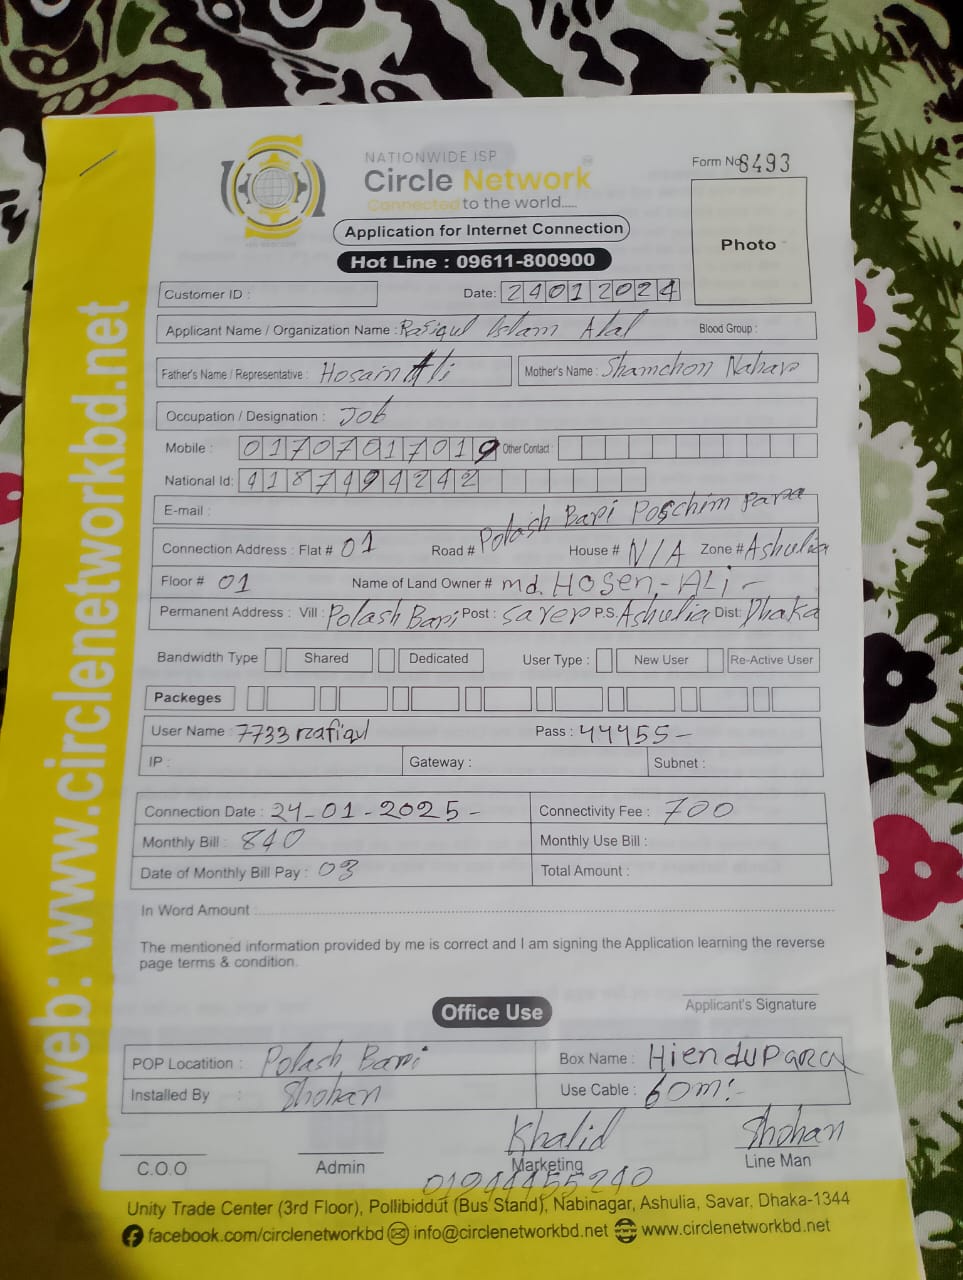 NATIONWIDE ISP
Circle Network
Connected to the world.....
Form No 8493
Application for Internet Connection
Hot Line : 09611-800900
Photo
Customer ID :
Date: 24012024
Applicant Name / Organization Name : Rafiqul Islam Alal Blood Group :
Father's Name / Representative : Hosain Ali Mother's Name : Shamchon Nahar
Occupation / Designation : Job
Mobile : 01707017019 Other Contact
National Id: 4187494242
E-mail :
Connection Address : Flat # 01 Road # Polash Bari Poschim Para House # N/A Zone # Ashulia
Floor # 01 Name of Land Owner # md. HOSEN-ALi-
Permanent Address : Vill : Polash Bari Post : Saver P.S. Ashulia Dist: Dhaka
Bandwidth Type Shared Dedicated User Type : New User Re-Active User
Packeges
User Name : 7733 rafiqul Pass : 44455-
IP : Gateway : Subnet :
Connection Date : 24-01-2025- Connectivity Fee : 700
Monthly Bill : 840 Monthly Use Bill :
Date of Monthly Bill Pay : 03 Total Amount :
In Word Amount :
The mentioned information provided by me is correct and I am signing the Application learning the reverse
page terms & condition.
Applicant's Signature
Office Use
POP Locatition : Polash Bari Box Name : HienduPara
Installed By : Shohan Use Cable : 60m:-
Khalid Shohan
C.O.O Admin Marketing Line Man
Unity Trade Center (3rd Floor), Pollibiddut (Bus Stand), Nabinagar, Ashulia, Savar, Dhaka-1344
facebook.com/circlenetworkbd info@circlenetworkbd.net www.circlenetworkbd.net
web: www.circlenetworkbd.net